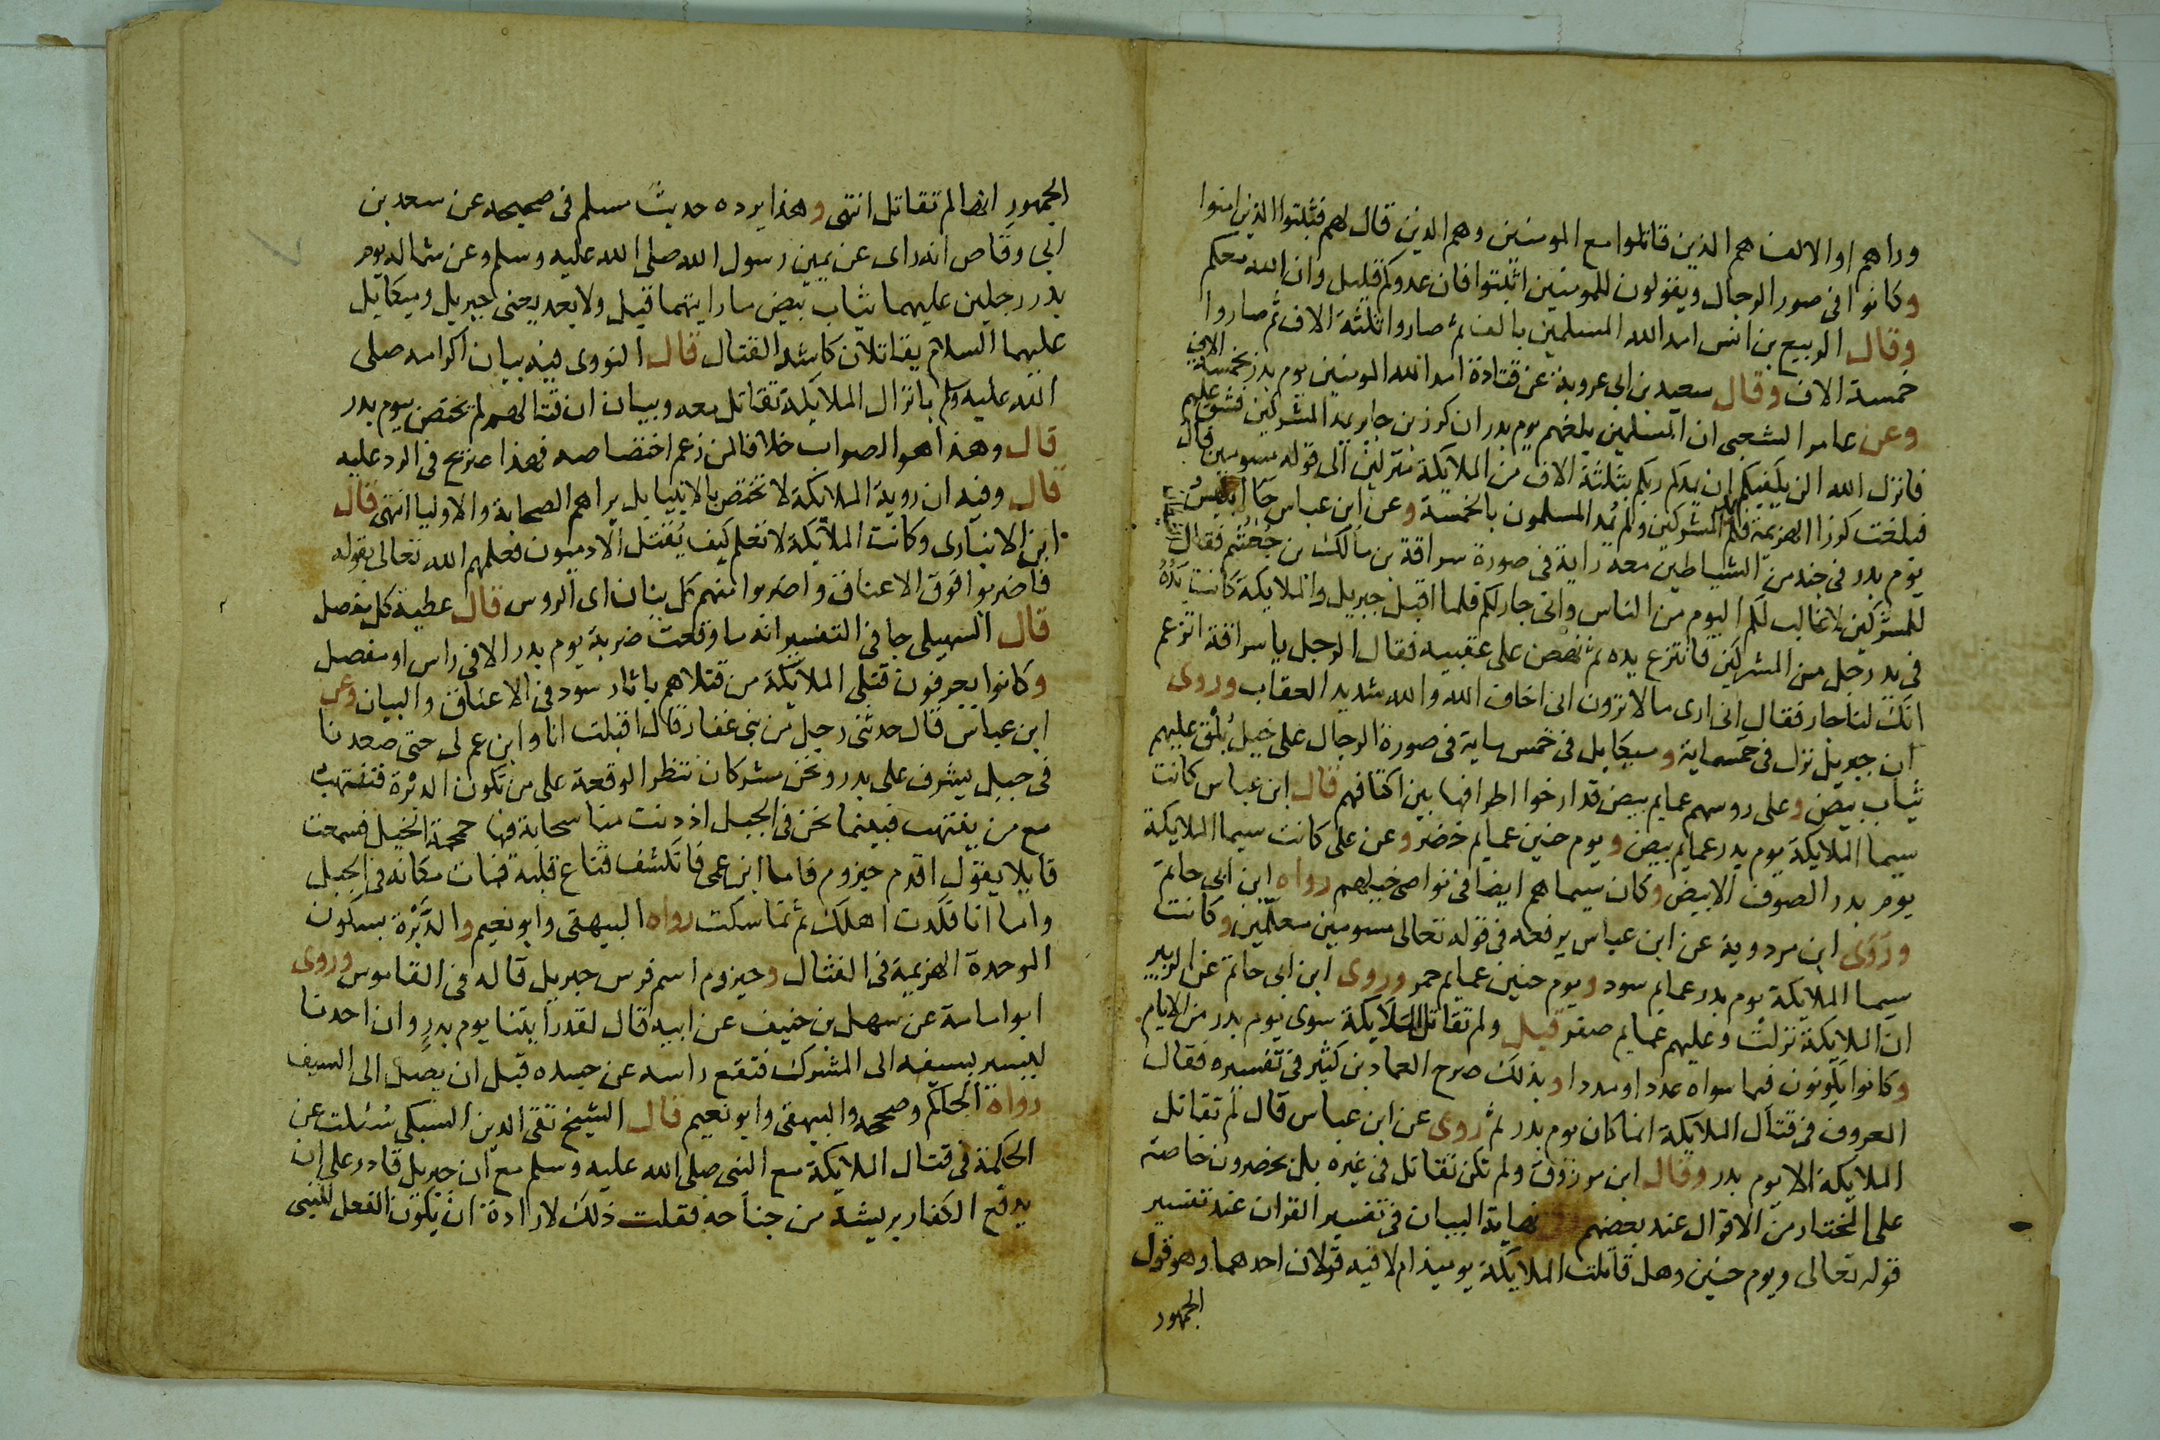 وراهم او الالف هم الذين قاتلوا مع المومنين وهم الذين قال لهم فثبتوا الذين امنوا
وكانوا فى صور الرجال ويقولون للمومنين اثبتوا فان عدوكم قليل وان الله معكم
وقال الربيع بن انس امد الله المسلمين بالف ثم صاروا ثلثة الاف ثم صاروا
خمسة الاف وقال سعيد بن ابى عروبة عن قتادة امد الله المومنين يوم بدر بخمسة الاف
وعن عامر الشعبى ان المسلمين بلغهم يوم بدر ان كرز بن جابر يمد المشركين فشق عليهم
فانزل الله الن يكفيكم ان يمدكم ربكم بثلثة الاف من الملايكة منزلين الى قوله مسومين قال
فبلغت كرزا الهزيمة فلم يمد المشركين ولم يُمد المسلمون بالخمسة وعن ابن عباس جَا ابليس
يوم بدر فى جند من الشياطين معه راية فى صورة سراقة بن مالك بن جُعْشُم فقال
للمشركين لا غالب لكم اليوم من الناس وانى جار لكم فلما اقبل جبريل والملايكة كانت يَدُهُ
فى يد رجل من المشركين فانتزع يده ثم نكص على عقبيه فقال الرجل يا سراقة اتزعم
انك لنا جار فقال انى ارى ما لا ترون انى اخاف الله والله شديد العقاب وروى
ان جبريل نزل فى خمسماية وميكايل فى خمس ماية فى صورة الرجال على خيل بُلْقٍ عليهم
ثياب بيض وعلى روسهم عمايم بيض قد ارخوا اطرافها بين اكتافهم قال ابن عباس كانت
سيما الملايكة يوم بدر عمايم بيض ويوم حنين عمايم خضر وعن على كانت سيما الملايكة
يوم بدر الصوف الابيض وكان سيماهم ايضا فى نواصى خيلهم رواه ابن ابى حاتم
وَرَوَى ابن مردوية عن ابن عباس يرفعه فى قوله تعالى مسومين معلّمين وكانت
سيما الملايكة يوم بدر عمايم سود ويوم حنين عمايم حمر وروى ابن ابى حاتم عن الزبير
ان الملايكة نزلت وعليهم عمايم صفر قيل ولم تقاتل الملايكة سوى يوم بدر من الايام
وكانوا يكونون فيما سواه عددا ومددا وبذلك صرح العماد بن كثير فى تفسيره فقال
المعروف فى قتال الملايكة انما كان يوم بدر ثم روى عن ابن عباس قال لم تقاتل
الملايكة الا يوم بدر وقال ابن مرزوق ولم تكن تقاتل فى غيره بل يحضرون خاصة
على المختار من الاقوال عند بعضهم نهاية البيان فى تفسير القران عند تفسير
قوله تعالى ويوم حنين وهل قاتلت الملايكة يوميذ ام لا فيه قولان احدهما وهو قول
الجمهور
الجمهور انها لم تقاتل انتهى وهذا يرده حديث مسلم فى صحيحه عن سعد بن
ابى وقاص انه راى عن يمين رسول الله صلى الله عليه وسلم وعن شماله يوم
بدر رجلين عليهما ثياب بيض ما رايتهما قبل ولا بعد يعنى جبريل وميكايل
عليهما السلام يقاتلان كاشد القتال قال النووى فيه بيان اكرامه صلى
الله عليه وسلم بانزال الملايكة تقاتل معه وبيان ان قتالهم لم يختص بيوم بدر
قال وهذا هو الصواب خلافا لمن زعم اختصاصه فهذا صريح فى الرد عليه
قال وفيه ان روية الملايكة لا تختص بالانبيا بل يراهم الصحابة والاوليا انتهى قال
ابن الانبارى وكانت الملايكة لا تعلم كيف يُقتل الادميون فعلمهم الله تعالى بقوله
فاضربوا فوق الاعناق واضربوا منهم كل بنان اى الروس قال عطية كل مفصل
قال السهيلى جا فى التفسير انه ما وقعت ضربة يوم بدر الا فى راس او مفصل
وكانوا يعرفون قتلى الملايكة من قتلاهم باثار سود فى الاعناق والبنان وعن
ابن عباس قال حدثنى رجل من بنى غفار قال اقبلت انا وابن عم لى حتى صعدنا
فى جبل يشرف على بدر ونحن مشركان ننتظر الوقعة على من تكون الدبرة فننتهب
مع من ينتهب فبينما نحن فى الجبل اذ دنت منا سحابة فيها حمحمة الخيل فسمعت
قايلا يقول اقدم حيزوم فاما ابن عمى فانكشف قناع قلبه فمات مكانه فى الجبل
واما انا فكدت اهلك ثم تماسكت رواه البيهقى وابو نعيم والدَّبْرة بسكون
الموحدة الهزيمة فى القتال وحيزوم اسم فرس جبريل قاله فى القاموس وروى
ابو امامة عن سهل بن حنيف عن ابيه قال لقد رايتنا يوم بدر وان احدنا
ليشير بسيفه الى المشرك فتقع راسه عن جسده قبل ان يصل الى السيف
رواه الحاكم وصححه والبيهقى وابو نعيم قال الشيخ تقى الدين السبكى سُئلت عن
الحكمة فى قتال الملايكة مع النبى صلى الله عليه وسلم مع ان جبريل قادر على ان
يدفع الكفار بريشة من جناحه فقلت ذلك لارادة ان يكون الفعل للنبى